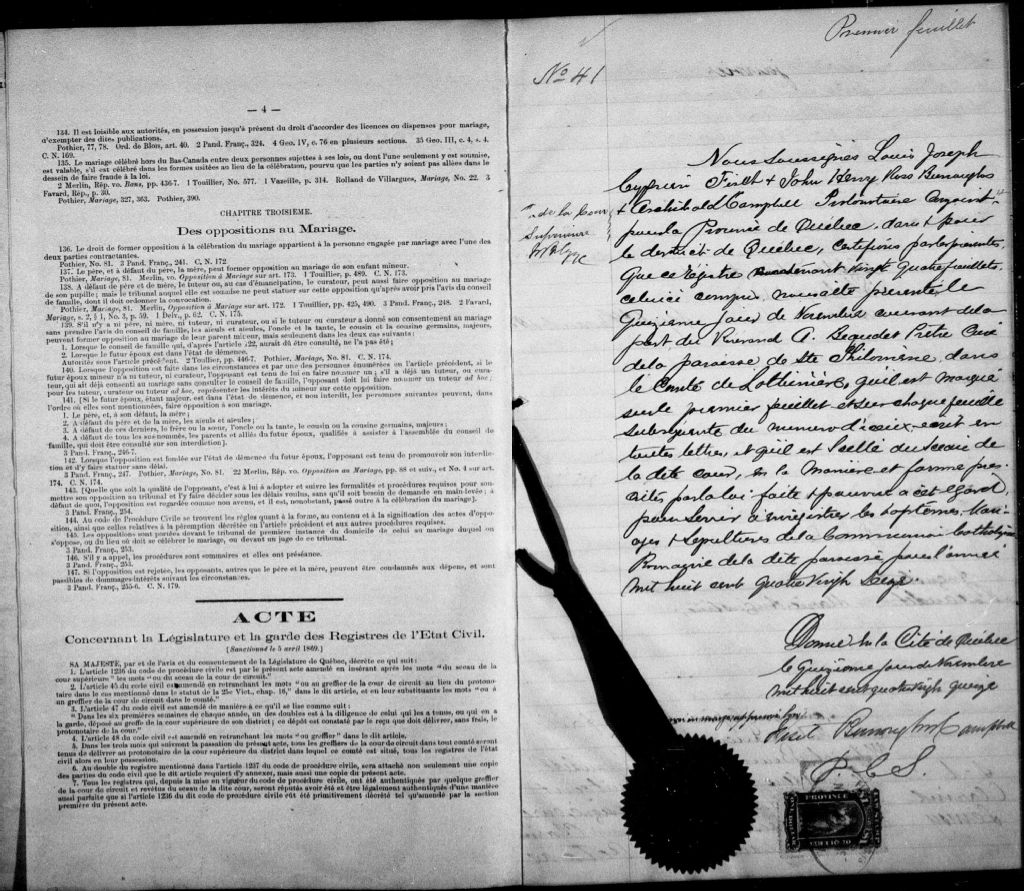 — 4 —
134. Il est loisible aux autorités, en possession jusqu'à présent du droit d'accorder des licences ou dispenses pour mariage,
d'exempter des dites publications.
Pothier, 77, 78. Ord. de Blois, art. 40. 2 Pand. Franç., 324. 4 Geo. IV, c. 76 en plusieurs sections. 35 Geo. III, c. 4, s. 4.
C. N. 169.
135. Le mariage célébré hors du Bas-Canada entre deux personnes sujettes à ses lois, ou dont l'une seulement y est soumise,
est valable, s'il est célébré dans les formes usitées au lieu de la célébration, pourvu que les parties n'y soient pas allées dans le
dessein de faire fraude à la loi.
2 Merlin, Rép. vo. Bans, pp. 436-7. 1 Touillier, No. 577. 1 Vazeille, p. 314. Rolland de Villargues, Mariage, No. 22. 3
Favard, Rép., p. 30.
Pothier, Mariage, 327, 363. Pothier, 390.
CHAPITRE TROISIÈME.
Des oppositions au Mariage.
136. Le droit de former opposition à la célébration du mariage appartient à la personne engagée par mariage avec l'une des
deux parties contractantes.
Pothier, No. 81. 3 Pand. Franç., 241. C. N. 172
137. Le père, et à défaut du père, la mère, peut former opposition au mariage de son enfant mineur.
Pothier, Mariage, 81. Merlin, vo. Opposition à Mariage sur art. 173. 1 Touillier, p. 489. C. N. 173.
138. A défaut de père et de mère, le tuteur ou, au cas d'émancipation, le curateur, peut aussi faire opposition au mariage
de son pupille; mais le tribunal auquel elle est soumise ne peut statuer sur cette opposition qu'après avoir pris l'avis du conseil
de famille, dont il doit ordonner la convocation.
Pothier, Mariage, 81. Merlin, Opposition à Mariage sur art. 172. 1 Touillier, pp. 425, 490. 3 Pand. Franç., 248. 2 Favard,
Mariage, s. 2, § 1, No. 3, p. 59. 1 Delv., p. 62. C. N. 175.
139. S'il n'y a ni père, ni mère, ni tuteur, ni curateur, ou si le tuteur ou curateur a donné son consentement au mariage
sans prendre l'avis du conseil de famille, les aïeuls et aïeules, l'oncle et la tante, le cousin et la cousine germains, majeurs,
peuvent former opposition au mariage de leur parent mineur, mais seulement dans les deux cas suivants:
1. Lorsque le conseil de famille qui, d'après l'article 122, aurait dû être consulté, ne l'a pas été;
2. Lorsque le futur époux est dans l'état de démence.
Autorités sous l'article précédent. 2 Toullier, pp. 446-7. Pothier, Mariage, No. 81. C. N. 174.
140. Lorsque l'opposition est faite dans les circonstances et par une des personnes énumérées en l'article précédent, si le
futur époux mineur n'a ni tuteur, ni curateur, l'opposant est tenu de lui en faire nommer un; s'il a déjà un tuteur, ou curateur,
qui ait déjà consenti au mariage sans consulter le conseil de famille, l'opposant doit lui faire nommer un tuteur ad hoc;
pour les tuteur, curateur ou tuteur ad hoc, représenter les intérêts du mineur sur cette opposition.
141. [Si le futur époux, étant majeur, est dans l'état de démence, et non interdit, les personnes suivantes peuvent, dans
l'ordre où elles sont mentionnées, faire opposition à son mariage.
1. Le père, et, à son défaut, la mère;
2. A défaut du père et de la mère, les aïeuls et aïeules;
3. A défaut de ces derniers, le frère ou la sœur, l'oncle ou la tante, le cousin ou la cousine germains, majeurs;
4. A défaut de tous les sus nommés, les parents et alliés du futur époux, qualifiés à assister à l'assemblée du conseil de
famille, qui doit être consulté sur son interdiction].
3 Pand. Franç., 246-7.
142. Lorsque l'opposition est fondée sur l'état de démence du futur époux, l'opposant est tenu de promouvoir son interdiction
et d'y faire statuer sans délai.
3 Pand. Franç., 247. Pothier, Mariage, No. 81. 22 Merlin, Rép. vo. Opposition au Mariage, pp. 88 et suiv., et No. 4 sur art.
174. C. N. 174.
143. [Quelque soit la qualité de l'opposant, c'est à lui à adopter et suivre les formalités et procédures requises pour soumettre
son opposition au tribunal et l'y faire décider sous les délais voulus, sans qu'il soit besoin de demande en main-levée; à
défaut de quoi, l'opposition est regardée comme non avenue, et il est, nonobstant, passé outre à la célébration du mariage].
3 Pand. Franç., 254.
144. Au code de Procédure Civile se trouvent les règles quant à la forme, au contenu et à la signification des actes d'opposition,
ainsi que celles relatives à la péremption décrétée en l'article précédent et aux autres procédures requises.
145. Les oppositions sont portées devant le tribunal de première instance du domicile de celui au mariage duquel on
s'oppose, ou du lieu où doit se célébrer le mariage, ou devant un juge de ce tribunal.
3 Pand. Franç., 253.
146. S'il y a appel, les procédures sont sommaires et elles ont préséance.
3 Pand. Franç., 253.
147. Si l'opposition est rejetée, les opposants, autres que le père et la mère, peuvent être condamnés aux dépens, et sont
passibles de dommages-intérêts suivant les circonstances.
3 Pand. Franç., 255-6. C. N. 179.
ACTE
Concernant la Législature et la garde des Registres de l'Etat Civil.
[Sanctionné le 5 avril 1869.]
SA MAJESTÉ, par et de l'avis et du consentement de la Législature de Québec, décrète ce qui suit:
1. L'article 1236 du code de procédure civile est par le présent acte amendé en insérant après les mots "du sceau de la
cour supérieure" les mots "ou du sceau de la cour de circuit."
2. L'article 45 du code civil est amendé en retranchant les mots "ou au greffier de la cour de circuit au lieu du protonotaire
dans le cas mentionné dans le statut de la 25e Vict., chap. 16," dans le dit article, et en leur substituants les mots "ou à
un greffier de la cour de circuit dans le comté."
3. L'article 47 du code civil est amendé de manière à ce qu'il se lise comme suit:
"Dans les six premières semaines de chaque année, un des doubles est à la diligence de celui qui les a tenus, ou qui en a
la garde, déposé au greffe de la cour supérieure de son district; ce dépôt est constaté par le reçu que doit délivrer, sans frais, le
protonotaire de la cour."
4. L'article 48 du code civil est amendé en retranchant les mots "ou greffier" dans le dit article.
5. Dans les trois mois qui suivront la passation du présent acte, tous les greffiers de la cour de circuit dans tout comté seront
tenus de délivrer au protonotaire de la cour supérieure du district dans lequel ce comté est situé, tous les registres de l'état
civil alors en leur possession.
6. Au double du registre mentionné dans l'article 1237 du code de procédure civile, sera attaché non seulement une copie
des parties du code civil que le dit article requiert d'y annexer, mais aussi une copie du présent acte.
7. Tous les registres qui, depuis la mise en vigueur du code de procédure civile, ont été authentiqués par quelque greffier
de la cour de circuit et revêtu du sceau de la dite cour, seront réputés avoir été et être légalement authentiqués d'une manière
aussi parfaite que si l'article 1236 du dit code de procédure civile eût été primitivement décrété tel qu'amendé par la section
première du présent acte.
Premier feuillet
No 41
Nous soussignés Louis Joseph
Cyprien Fiset & John Henry Ross Burroughs
& Archibald Campbell Protonotaire Conjoint
de la Cour
Supérieure
pour la Province de Québec, dans & pour
le district de Québec, certifions par les présentes
Que ce registre contenant Vingt Quatre feuillets
celui-ci compris nous a été présenté le
Quinzième jour de Novembre courant de la
part du Révérend A. Bequedet Prêtre Curé
de la paroisse de Ste Philomène, dans
le Comté de Lotbinière, qu'il est marqué
sur le premier feuillet et sur chaque feuille
subséquente du numéro d'iceux, écrit en
toutes lettres, et qu'il est Scellé du sceau de
la dite cour, en la Manière et forme pres-
crites par la loi: faite & pourvu à cet égard,
pour Servir à enregistrer les baptêmes, Mari-
ages & Sépultures de la Communion Catholique
Romaine de la dite paroisse pour l'année
mil huit cent quatre vingt Seize.
Donné en la Cité de Québec
le Quinzième jour de Novembre
mil huit cent quatre vingt quinze
Fiset Burroughs & Campbell
P. C. S
PROVINCE
OF QUEBEC
$1